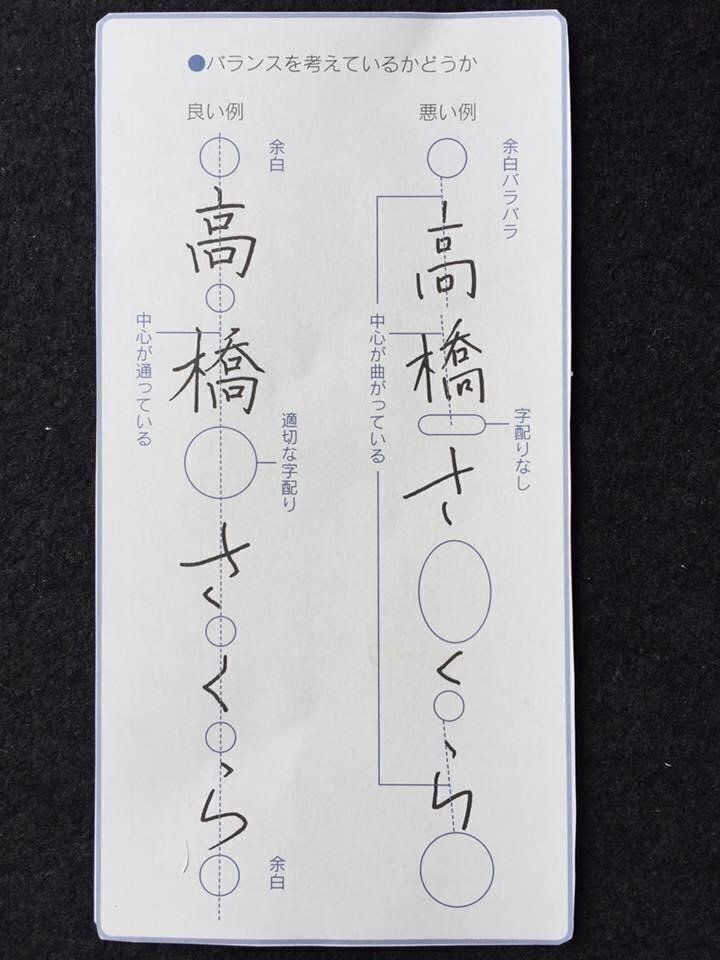 ●バランスを考えているかどうか
良い例
余白
高橋さくら
中心が通っている
適切な字配り
余白
悪い例
余白バラバラ
高橋さくら
中心が曲がっている
字配りなし